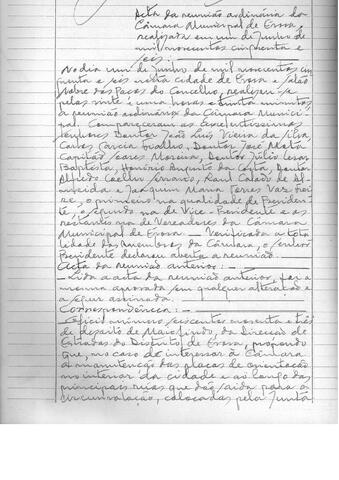 Acta da reunião ordinária da
Câmara Municipal de Evora,
realizada em um de Junho de
mil novecentos cinquenta e
seis:
No dia um de Junho de mil novecentos cin-
quenta e seis nesta cidade de Evora e salão
Nobre dos Paços do Concelho, realizou-se
pelas vinte e uma horas e trinta minutos
a reunião ordinária da Câmara Munici-
pal. Compareceram os Excelentíssimos
Senhores Doutor João Luís Vieira da Silva,
Carlos Garcia, Doutor José Mata,
Capitão Moreira, Doutor Júlio Cesar
Baptista, Honório Augusto da Costa, Doutor
Alfredo Coelho Amaro, Raul de Al-
meida e Joaquim Maria Torres Vaz Frei-
re, o primeiro na qualidade de Presiden-
te, o segundo na de Vice-Presidente e os
restantes na de Vereadores da Câmara
Municipal de Evora. - Verificada a tota-
lidade dos membros da Câmara, o senhor
Presidente declarou aberta a reunião.
Acta da reunião anterior: -
- Lida a acta da reunião anterior, foi a
mesma aprovada sem qualquer alteração e
a seguir assinada.
Correspondência: -
- Ofício número seiscentos noventa e três
de de Maio findo, da Direcção de
Estradas do Distrito de Evora, propondo
que, no caso de interessar à Câmara
a manutenção das placas de orientação
no interior da cidade e ao longo das
principais ruas que dão saida para a
circunvalação, colocadas pela Junta